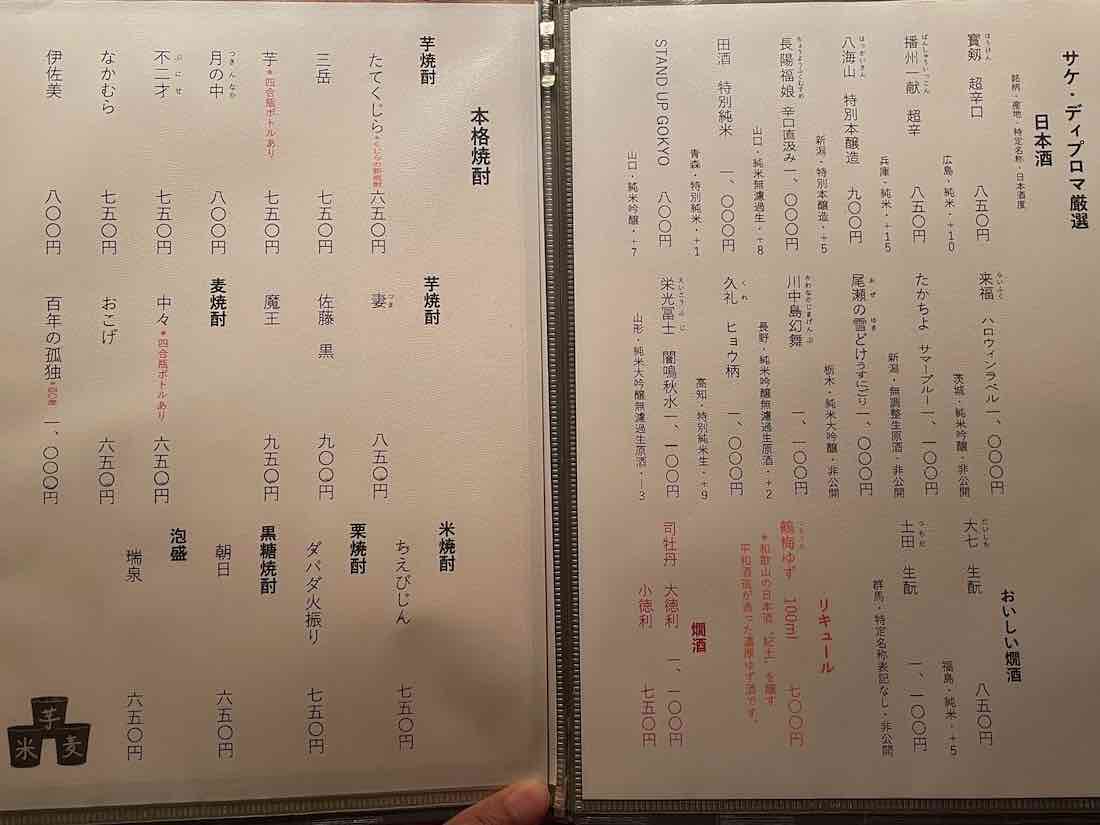 サケ・ディプロマ厳選
日本酒
銘柄・産地・特定名称・日本酒度
ほうけん
寶剱 超辛口 八五〇円
広島・純米・+10
ばんしゅういっこん
播州一献 超辛 八五〇円
兵庫・純米・+15
はっかいさん
八海山 特別本醸造 九〇〇円
新潟・特別本醸造・+5
ちょうようふくむすめ
長陽福娘 辛口直汲み 一、〇〇〇円
山口・純米無濾過生・+8
田酒 特別純米 一、〇〇〇円
青森・特別純米・+1
STAND UP GOKYO 八〇〇円
山口・純米吟醸・+7
らいふく
来福 ハロウィンラベル 一、〇〇〇円
茨城・純米吟醸・非公開
たかちよ サマーブルー 一、一〇〇円
新潟・無調整生原酒・非公開
おぜ ゆき
尾瀬の雪どけ うすにごり 一、〇〇〇円
栃木・純米大吟醸・非公開
かわなかじまげんぶ
川中島幻舞 一、一〇〇円
長野・純米吟醸無濾過生原酒・+2
くれ
久礼 ヒョウ柄 一、〇〇〇円
高知・特別純米生・+9
えいこうふじ
栄光冨士 闇鳴秋水 一、一〇〇円
山形・純米大吟醸無濾過生原酒・ー3
おいしい燗酒
だいしち
大七 生酛 八五〇円
福島・純米・+5
つちだ
土田 生酛 一、一〇〇円
群馬・特定名称表記なし・非公開
リキュール
つるうめ
鶴梅ゆず 100ml 七〇〇円
*和歌山の日本酒「紀土」を醸す
平和酒造が造った濃厚ゆず酒です。
燗酒
司牡丹 大徳利 一、一〇〇円
小徳利 七五〇円
本格焼酎
芋焼酎
たてくじら *くじらの新焼酎 六五〇円
三岳 七五〇円
芋 *四合瓶ボトルあり 七五〇円
つきんなか
月の中 八〇〇円
ぶにせ
不二才 七五〇円
なかむら 七五〇円
伊佐美 八〇〇円
芋焼酎
つま
妻 八五〇円
佐藤 黒 九〇〇円
魔王 九五〇円
麦焼酎
中々 *四合瓶ボトルあり 六五〇円
おこげ 六五〇円
百年の孤独 *四〇度 一、〇〇〇円
米焼酎
ちえびじん 七五〇円
栗焼酎
ダバダ火振り 七五〇円
黒糖焼酎
朝日 六五〇円
泡盛
瑞泉 六五〇円
芋
米
麦